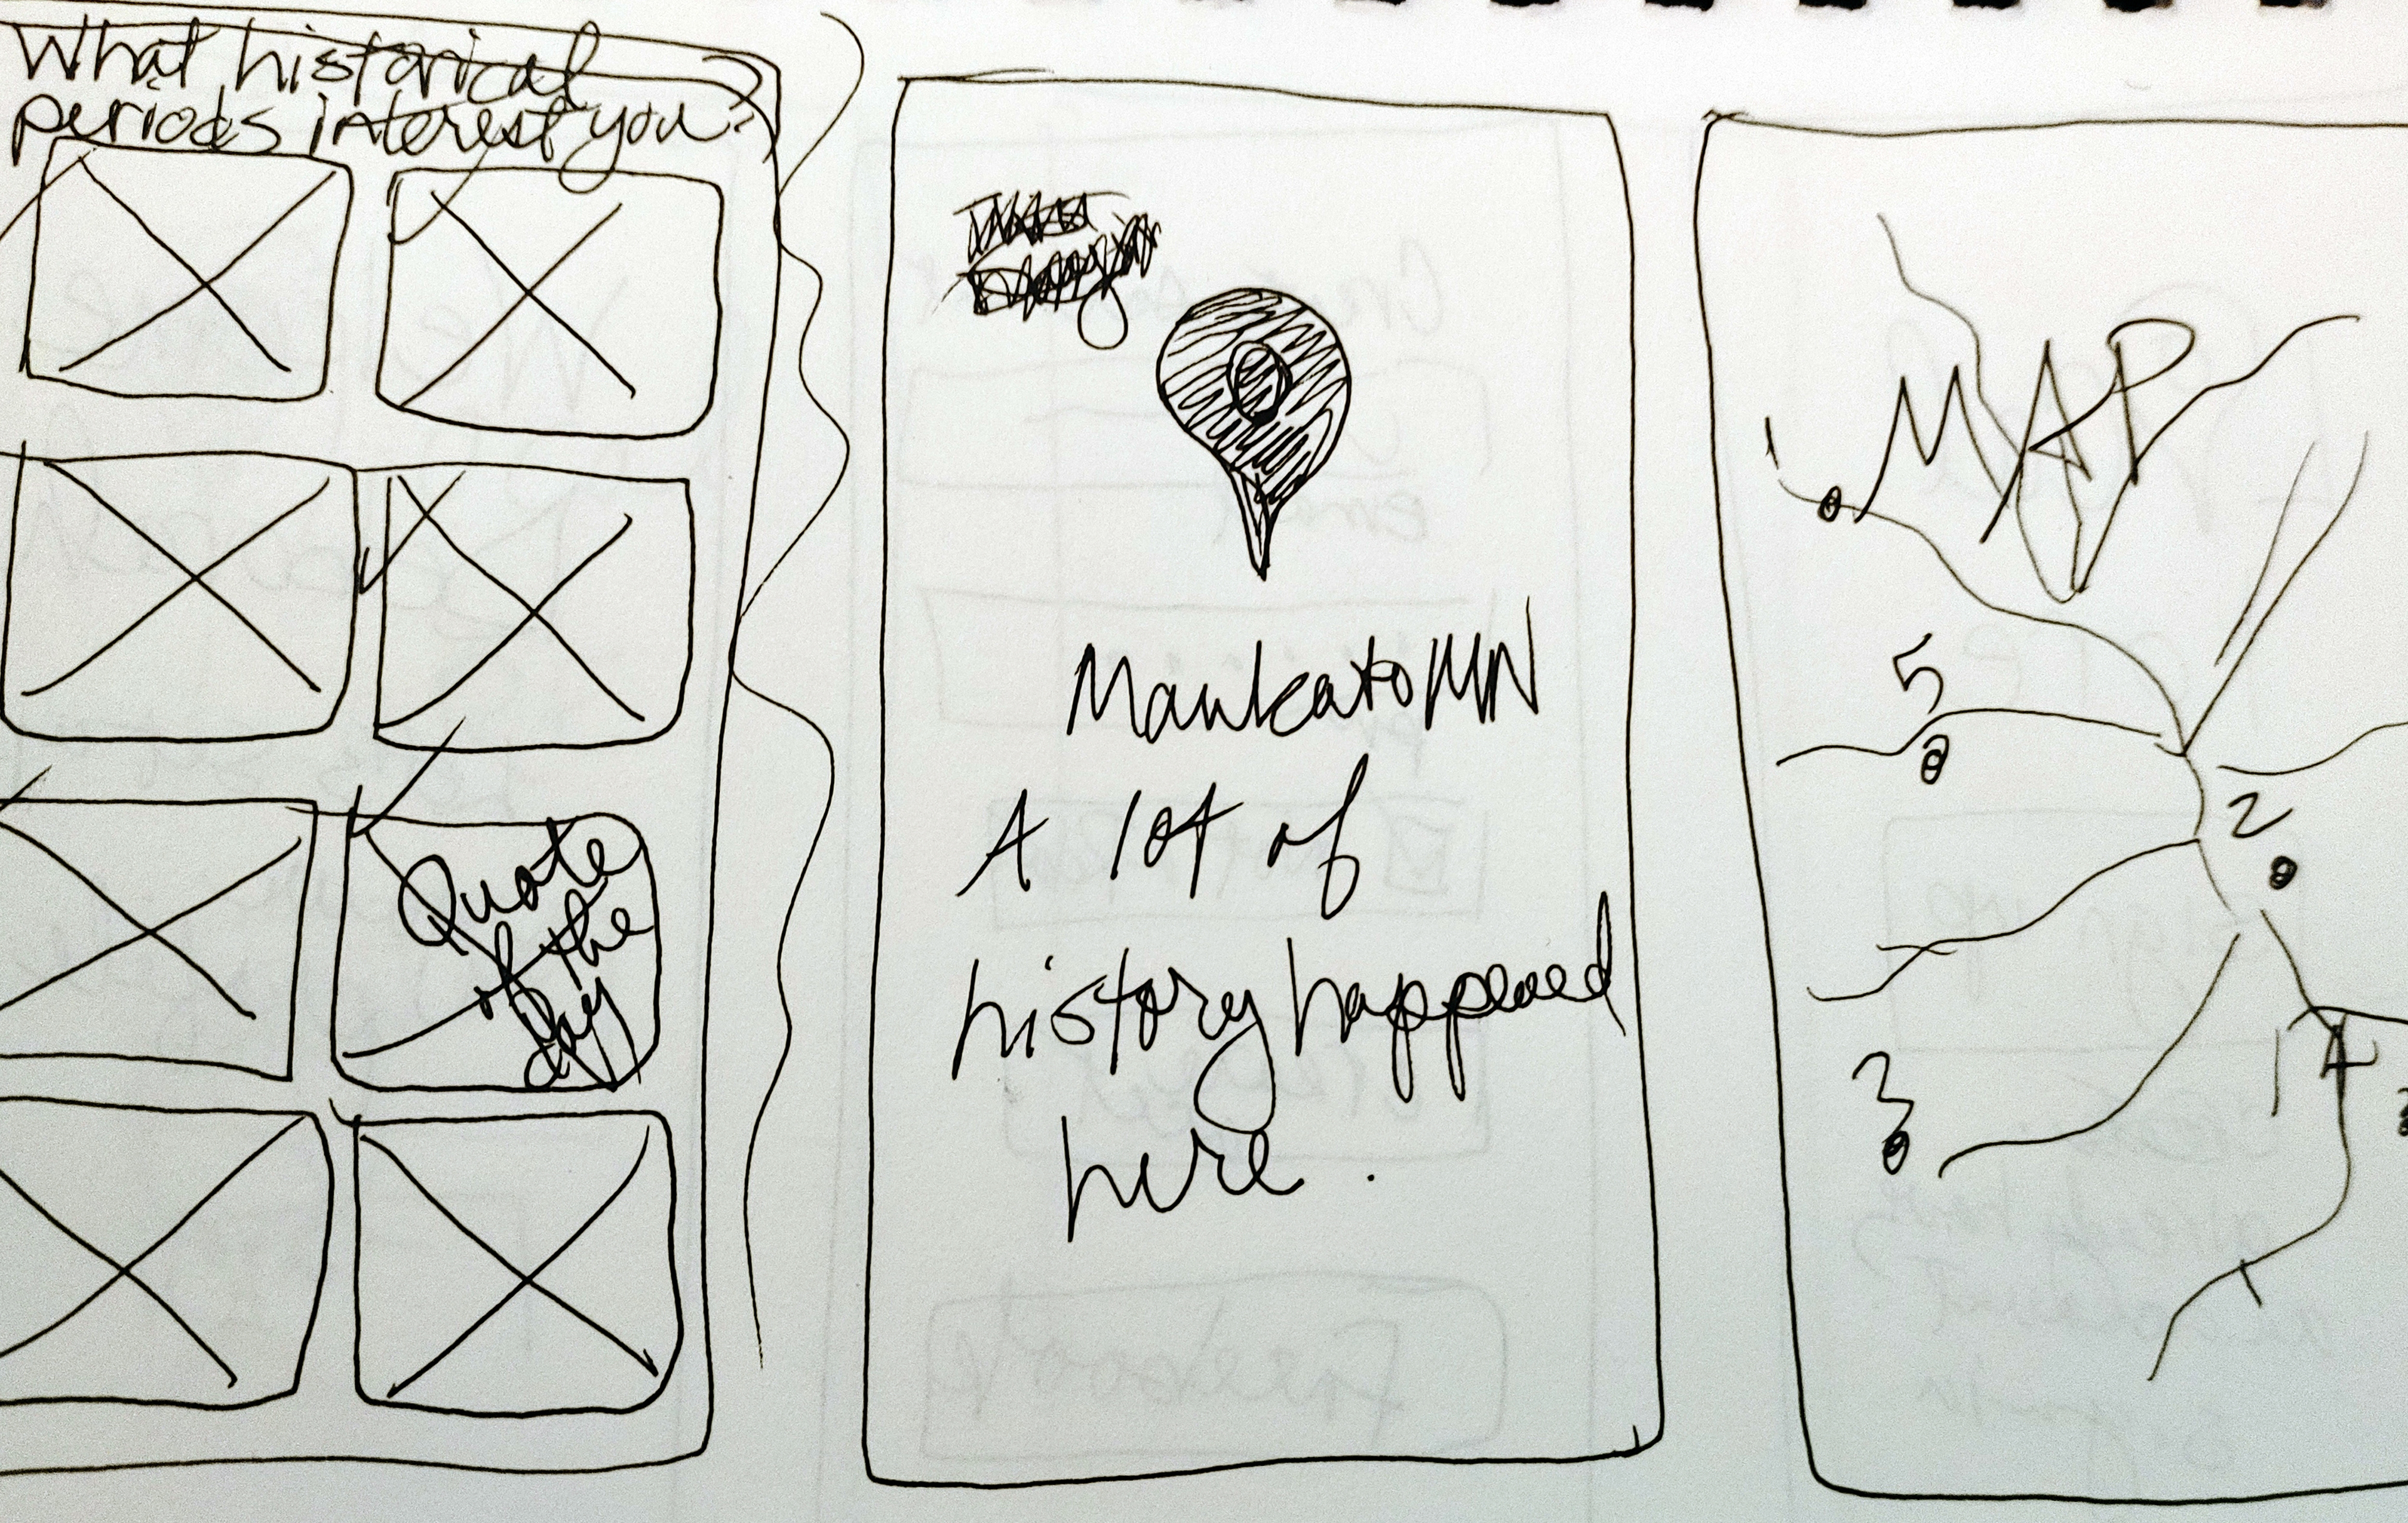 What historical
periods interest you?
Quote
of the
day
Mankato MN
A lot of
history happened
here.
MAP
1
5
2
3
4